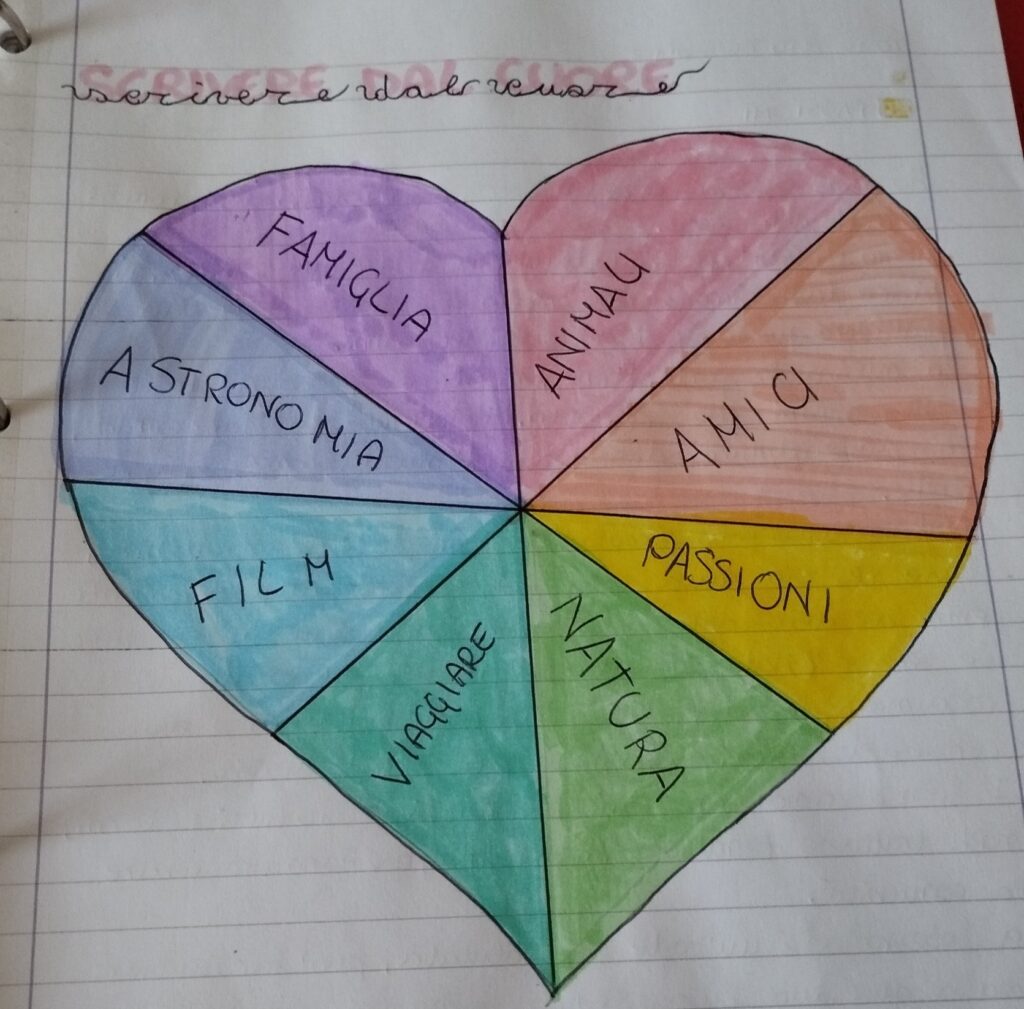 SCRIVERE DAL CUORE
scrivere dal cuore
FAMIGLIA
ANIMALI
ASTRONOMIA
AMICI
FILM
PASSIONI
VIAGGIARE
NATURA